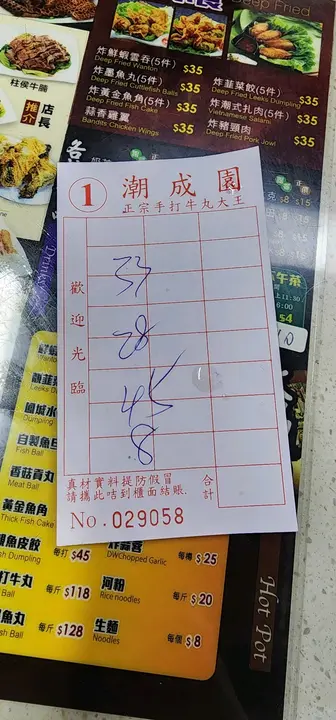 Deep Fried
炸鮮蝦雲吞(5件)
Deep Fried Wanton $35
炸墨魚丸(5件)
Deep Fried Cuttlefish Balls $35
炸黃金魚角(5件)
Deep Fried Fish Cake $35
蒜香雞翼
Bandits Chicken Wings $35
炸韮菜餃(5件)
Deep Fried Leeks Dumping $35
炸潮式扎肉(5件)
Vietnamese Salami $35
炸豬頸肉
Deep Fried Pork Jowl $35
柱侯牛腩
店長
推介
Drinks
午茶
$4
1 潮成園
正宗手打牛丸大王
歡迎光臨
33
28
45
8
真材實料提防假冒
請攜此咭到櫃面結賬.
合計
No. 029058
自製魚旦
Fish Ball
香菇貢丸
Meat Ball
黃金魚角
Thick Fish Cake
魚皮餃 每打 $45
Fish Dumping
打牛丸 每斤 $118
魚丸 每斤 $128
DWChopped Garlic 每樽 $25
河粉 每斤 $20
Rice noodles
生麵 每個 $8
Noodles
Hot Pot